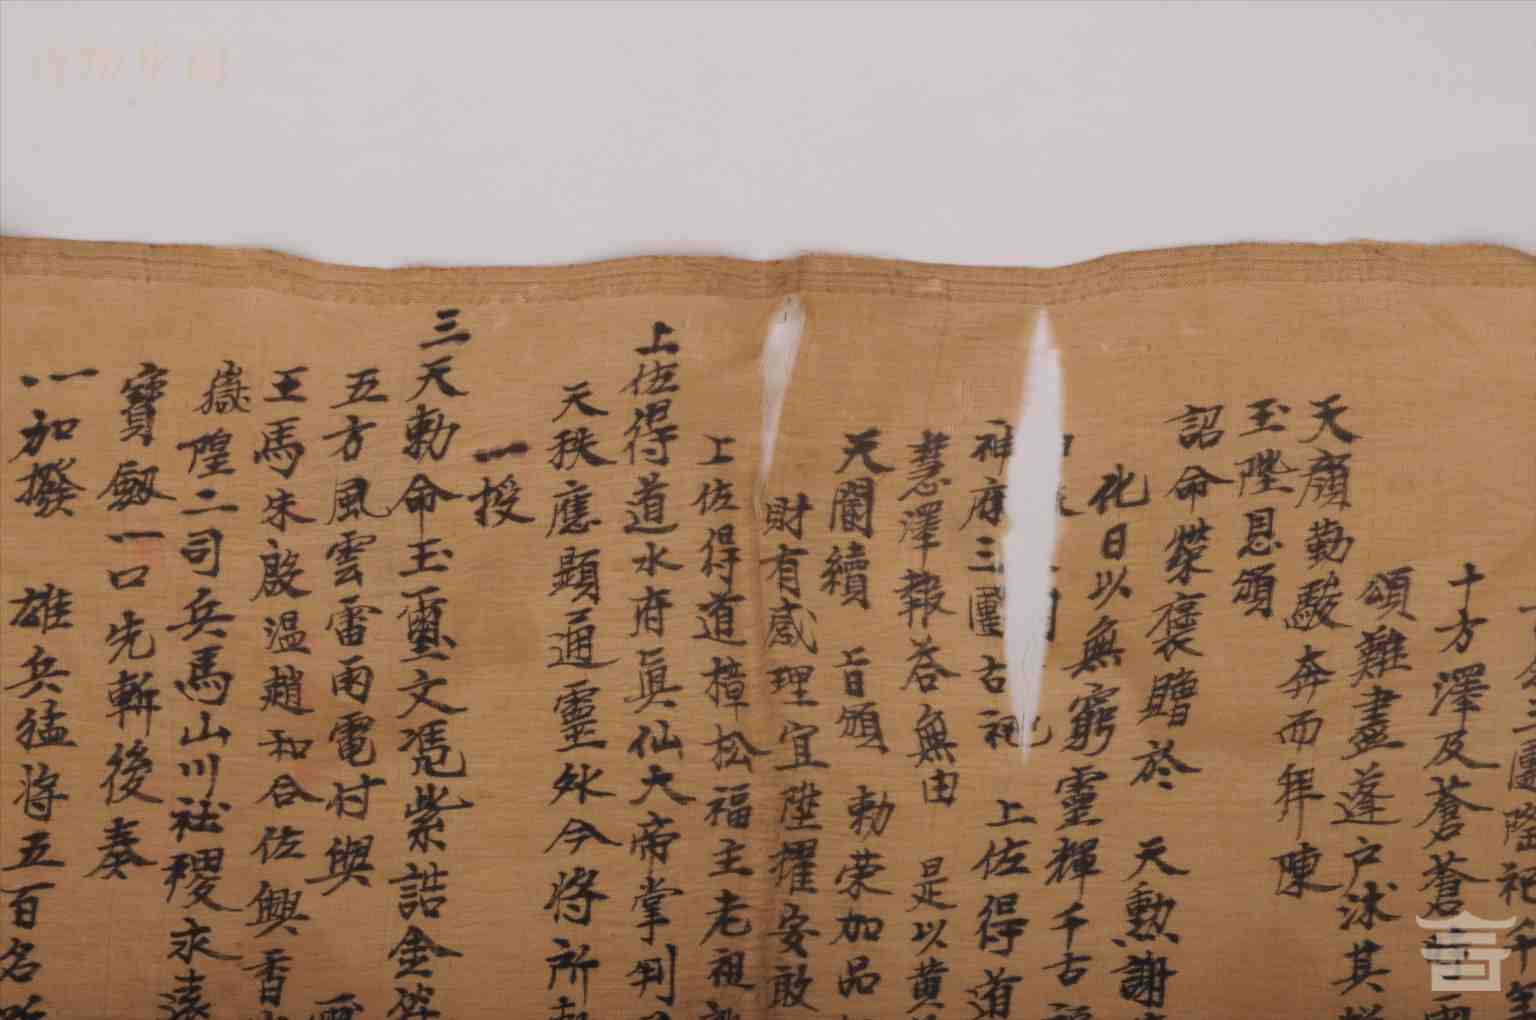 十方澤及蒼蒼
頌難盡蓬户沭其
天顔勤駿奔而拜陳
玉陛恩頒
詔命榮褒贈於 天勲謝
化日以無窮靈輝千古
神府三團古祀 上佐得道
慧澤報答無由 是以黄
天闇續 旨頒 勅荣加品
財有感理宜陞擢安敢
上佐得道樁松福主老祖
上佐得道水府眞仙大帝掌判
天秩應顯通靈外今将所
一授
三天勅命玉璽文凭紫誥金
五方風雲雷雨電付與
王馬朱殷温趙和合佐興香
嶽隍二司兵馬山川社稷永遠
寳劔一口先斬後奏
一加撥 雄兵猛将五百名